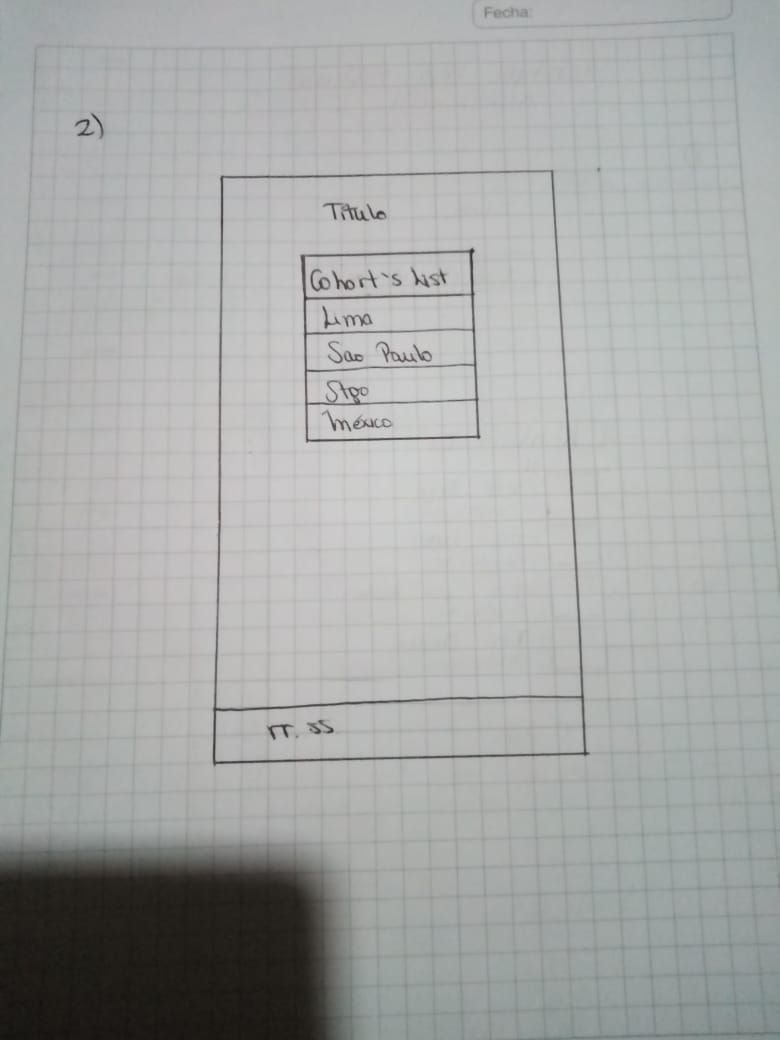 Fecha:
2)
Titulo
Cohort's List
Lima
Sao Paulo
Stgo
México
rr. ss